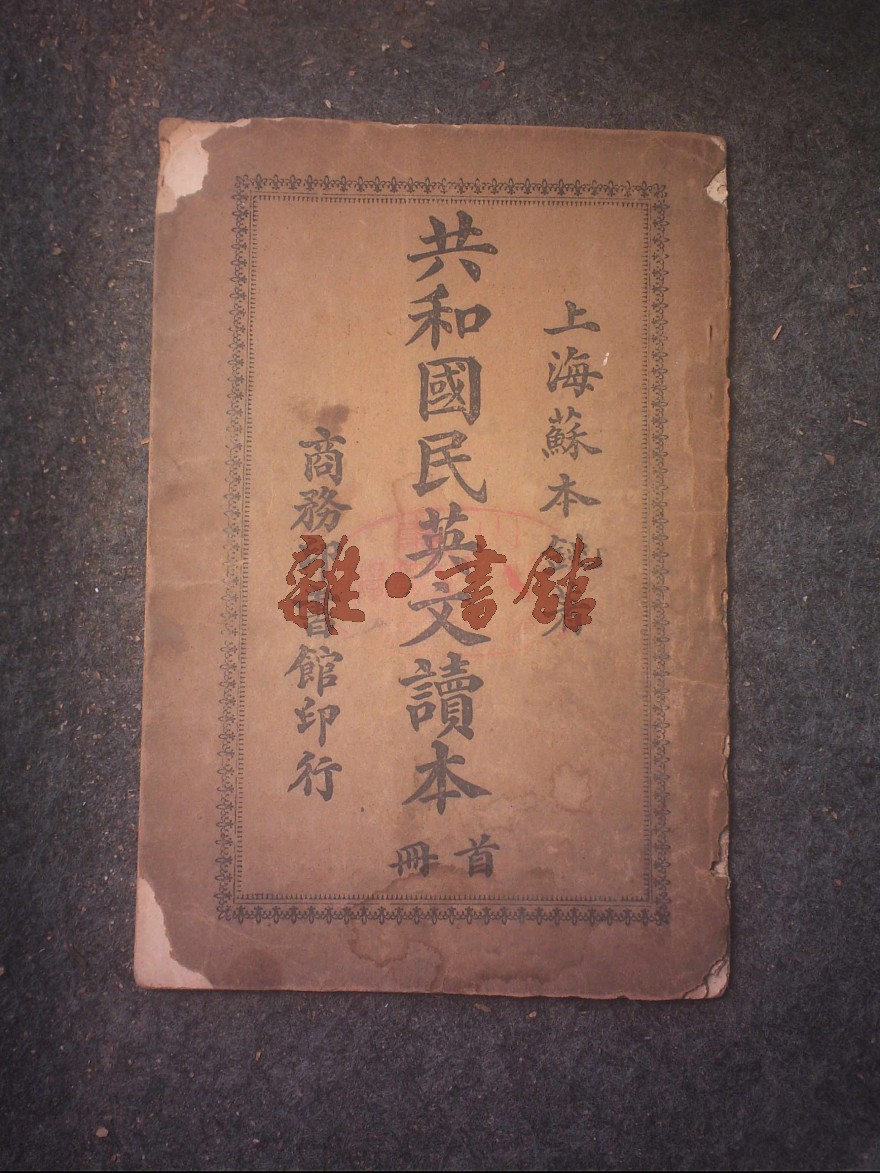 上海蘇本
共和國民英文讀本
首冊
商務印書館印行
雜·書館